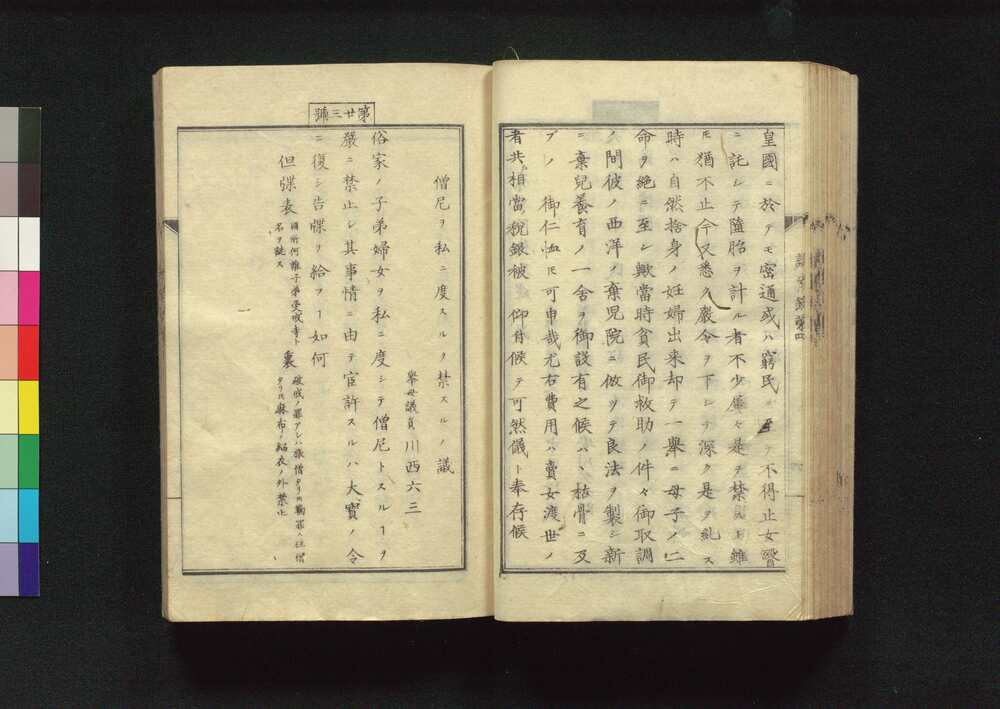 皇國ニ於テモ密通或ハ窮民ニ至テ不得止女醫
ニ託シテ隨胎ヲ計ル者不少屢々是ヲ禁スト雖
モ猶不止今又悉ク嚴令ヲ下シテ深ク是ヲ糺ス
時ハ自然捨身ノ妊婦出来却テ一擧ニ母子ノ二
命ヲ絶ニ至シ歟當時貧民御救助ノ件々御取調
ノ間彼ノ西洋ノ棄児院ニ倣ツテ良法ヲ製シ新
ニ棄兒養育ノ一舎ヲ御設有之候ハヽ枯骨ニ及
ブノ御仁恤モ可申哉尤右費用ハ賣女渡世ノ
者共相當税銀被仰付候テ可然儀ト奉存候
第廿三號
僧尼ヲ私ニ度スルヲ禁スルノ議
擧母議員川西六三
俗家ノ子弟婦女ヲ私ニ度シテ僧尼トスルヿヲ
嚴ニ禁止シ其事情ニ由テ官許スルハ大寶ノ令
ニ復シ告牒ヲ給フヿ如何
但牒表
國所何誰子弟受戒寺ト
名ヲ誌ス
裏
破戒ノ罪アレハ旅僧タリ尼
麻布ノ緇衣ノ外禁止